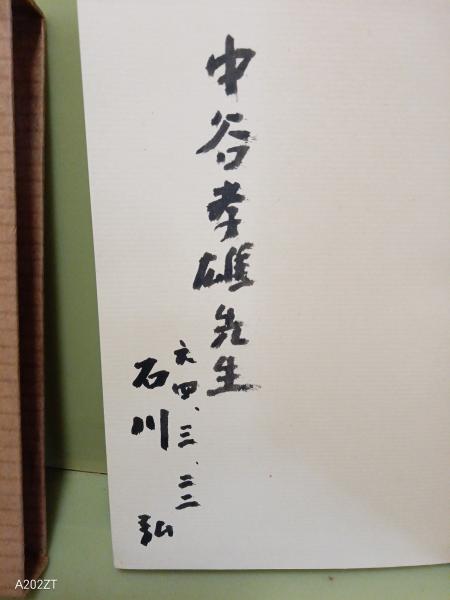 中谷孝雄先生
六四、三、二二
石川弘
A202ZT